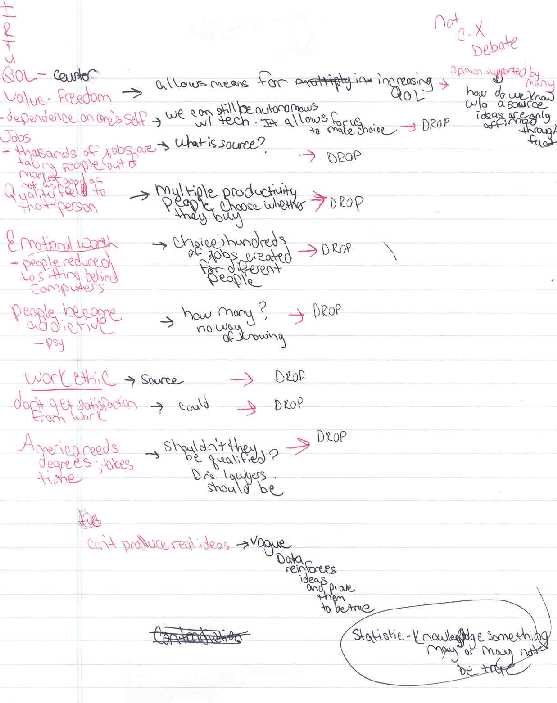 not
C.X
Debate
QOL -
Value - Freedom → allows means for increasing QOL → opinion supported by many
how do we know w/o a source ideas are only affirmed through
- dependence on one's self → we can still be autonomous w/ tech. It allows for us to make choice. → DROP
Jobs
- thousands of jobs are taking people out of → what is source? → DROP
Quality field to that person → Multiple productivity People choose whether they buy → DROP
Emotional worth → Choice, hundreds of Jobs created for different people → DROP
- people reduced to sitting behind computers
People become addictive → how many? no way of knowing → DROP
- psy
work ethic → Source → DROP
don't get satisfaction from work → could → DROP
America needs degrees, takes time → Shouldn't they be qualified? Drs lawyers should be → DROP
can't produce real ideas → Vague
Data reinforces ideas and prove them to be true
Statistic - Knowledge something may or may not be true